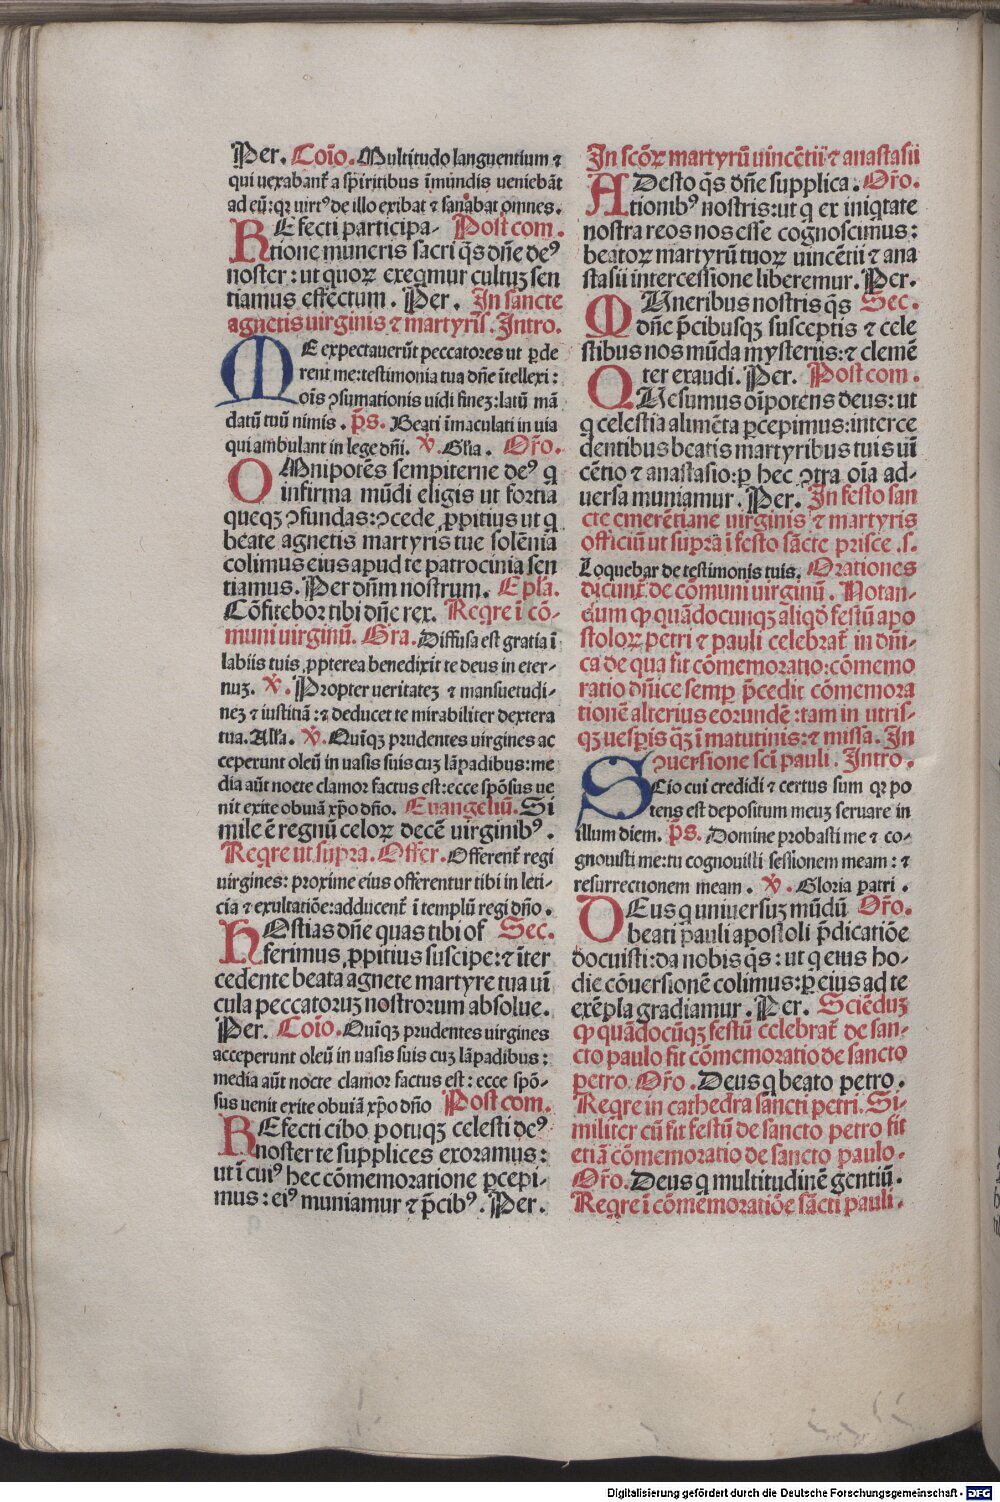 Per. Coĩo. Multitudo languentium ⁊
qui uexabant᷑ a sp̃iritibus ĩmundis ueniebãt
ad eũ: qꝛ uirt⁹ de illo exibat ⁊ sanabat omnes.
REfecti participa- Post com.
tione muneris sacri q̃s dñe de⁹
noster: ut quoꝝ exeqmur cultuꝫ sen
tiamus effectum. Per. In sancte
agnetis uirginis ⁊ martyrĩs. Intro.
ME expectauerũt peccatores ut ꝑde
rent me: testimonia tua dñe ĩtellexi:
oĩs ↄsumationis uidi fineꝫ: latũ mã
datũ tuũ nimis. p̃s. Beati ĩmaculati in uia
qui ambulant in lege dñi. ℣. Gl̃ia. Or̃o.
OMnipotẽs sempiterne de⁹ q
infirma mũdi eligis ut fortia
queqꝫ ↄfundas: ↄcede ꝓpitius ut q
beate agnetis martyris tue solẽnia
colimus eius apud te patrocinia sen
tiamus. Per dñm nostrum. Epl̃a.
Cõfitebor tibi dñe rex. Reqre ĩ cõ-
muni uirginũ. Gra. Diffusa est gratia ĩ
labiis tuis ꝓpterea benedixit te deus in eter-
nuꝫ. ℣. Propter ueritateꝫ ⁊ mansuetudi-
neꝫ ⁊ iustitiã: ⁊ deducet te mirabiliter dextera
tua. All̃a. ℣. Quĩqꝫ prudentes uirgines ac
ceperunt oleũ in uasis suis cuꝫ lãpadibus: me
dia aũt nocte clamor factus est: ecce spõsus ue
nit exite obuiã xp̃o dño. Euangeliũ. Si
mile ẽ regnũ celoꝝ decẽ uirginib⁹.
Reqre ut supra. Offer. Offerent᷑ regi
uirgines: proxime eius offerentur tibi in leti-
cia ⁊ exultatiõe: adducent᷑ ĩ templũ regi dño.
HOstias dñe quas tibi of Sec.
ferimus ꝓpitius suscipe: ⁊ ĩter
cedente beata agnete martyre tua uĩ
cula peccatoruꝫ nostrorum absolue.
Per. Coĩo. Quĩqꝫ prudentes uirgines
acceperunt oleũ in uasis suis cuꝫ lãpadibus:
media aũt nocte clamor factus est: ecce spõ-
sus uenit exite obuiã xp̃o dño Post com.
REfecti cibo potuqꝫ celesti de⁹
noster te supplices exoramus:
ut ĩ cui⁹ hec cõmemoratione ꝑcepi-
mus: ei⁹ muniamur ⁊ p̃cib⁹. Per.
In scõꝝ martyrũ uincẽtii ⁊ anastasii
ADesto q̃s dñe supplica. Or̃o.
tionib⁹ nostris: ut q ex iniqtate
nostra reos nos esse cognoscimus:
beatoꝝ martyrũ tuoꝝ uincẽtii ⁊ ana
stasii intercessione liberemur. Per.
MUneribus nostris q̃s Sec.
dñe p̃cibusqꝫ susceptis ⁊ cele
stibus nos mũda mysteriis: ⁊ clemẽ
ter exaudi. Per. Post com.
QUesumus oĩpotens deus: ut
q celestia alimẽta ꝑcepimus: interce
dentibus beatis martyribus tuis uĩ
cẽtio ⁊ anastasio: ꝑ hec ↄtra oĩa ad-
uersa muniamur. Per. In festo san
cte emerẽtiane uirginis ⁊ martyris
officiũ ut supra ĩ festo sãcte prisce .s.
Loquebar de testimonis tuis. Orationes
dicunt᷑ de cõmuni uirginũ. Notan-
dum ꝙ quãdocunqꝫ aliqd̃ festũ apo
stoloꝝ petri ⁊ pauli celebrat᷑ in dñi-
ca de qua fit cõmemoratio: cõmemo
ratio dñice semꝑ p̃cedit cõmemora
tionẽ alterius eorundẽ: tam in utris-
qꝫ uesꝑis q̃ꝫ ĩ matutinis: ⁊ missa. In
ↄuersione scĩ pauli. Intro.
SCio cui credidi ⁊ certus sum qꝛ po
tens est depositum meuꝫ seruare in
illum diem. p̃s. Domine probasti me ⁊ co-
gnouisti me: tu cognouisti sessionem meam: ⁊
resurrectionem meam. ℣. Gloria patri.
DEus q uniuersuꝫ mũdũ Or̃o.
beati pauli apostoli p̃dicatiõe
docuisti: da nobis q̃s: ut q eius ho-
die cõuersionẽ colimus: ꝑ eius ad te
exẽpla gradiamur. Per. Sciẽduꝫ
ꝙ quãdocũqꝫ festũ celebrat᷑ de san-
cto paulo fit cõmemoratio de sancto
petro. Or̃o. Deus q beato petro.
Reqre in cathedra sancti petri. Si-
militer cũ fit festũ de sancto petro fit
etiã cõmemoratio de sancto paulo.
Or̃o. Deus q multitudinẽ gentiũ.
Reqre ĩ cõmemoratiõe sãcti pauli.
Digitalisierung gefördert durch die Deutsche Forschungsgemeinschaft - DFG